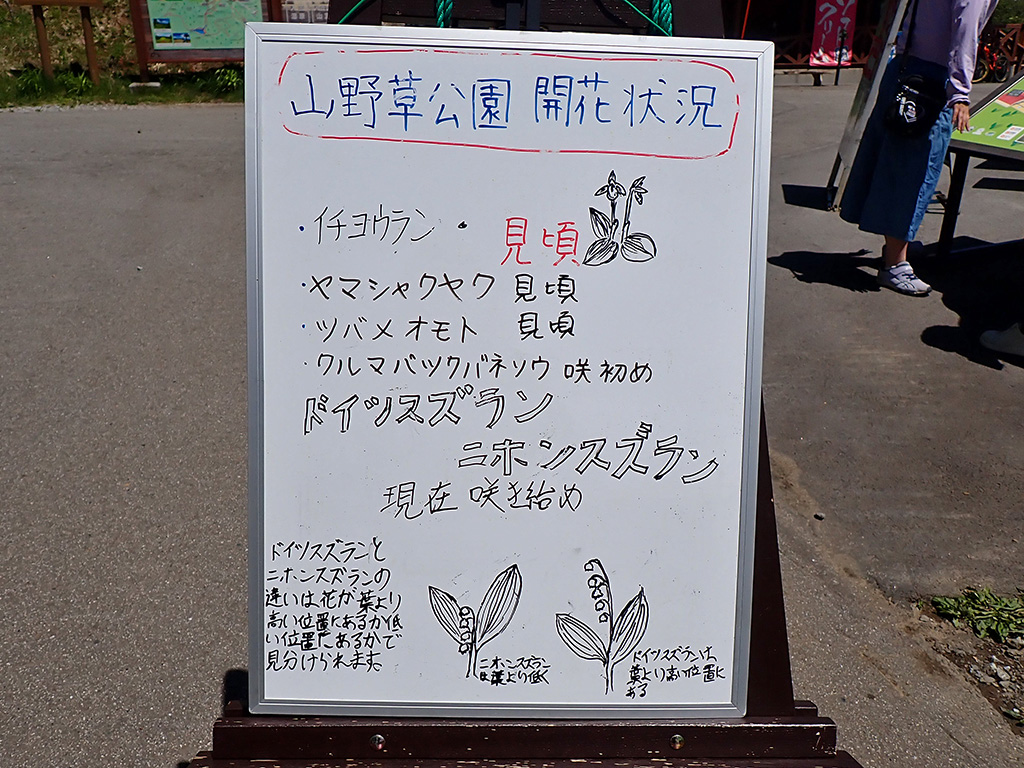 山野草公園 開花状況
・イチヨウラン・ 見頃
・ヤマシャクヤク 見頃
・ツバメオモト 見頃
・クルマバツクバネソウ 咲初め
ドイツスズラン
ニホンスズラン
現在 咲き始め
ドイツスズランと
ニホンスズランの
違いは花が葉より
高い位置にあるか低
い位置にあるかで
見分けられます。
ニホンスズラン
は葉より低く
ドイツスズランは、
葉より高い位置に
ある